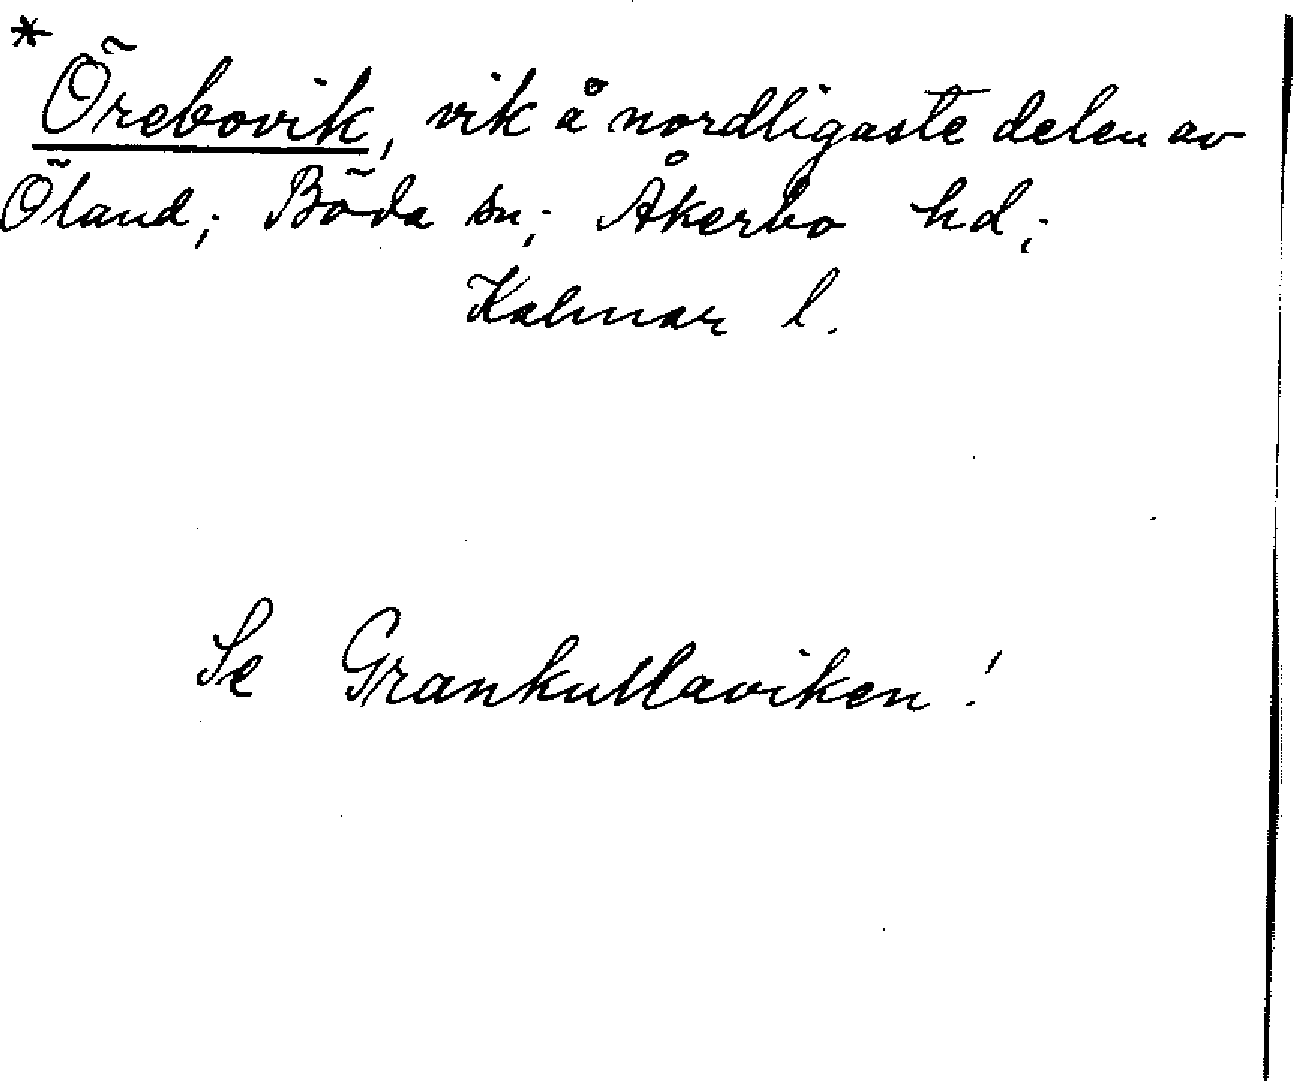 *Örebovik, vik å nordligaste delen av
Öland; Böda sn; Åkerbo hd;
Kalmar l.
Se Grankullaviken!